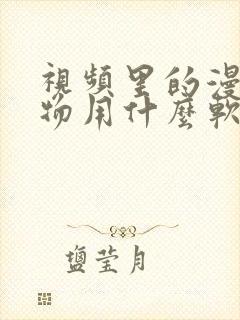 視頻里的漫
物用什麼軟
鹽莹月